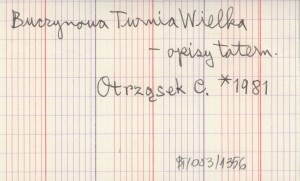 Buczynowa Turnia Wielka
- opisy tatern.
Otrząsek C. *1981
/033/1356